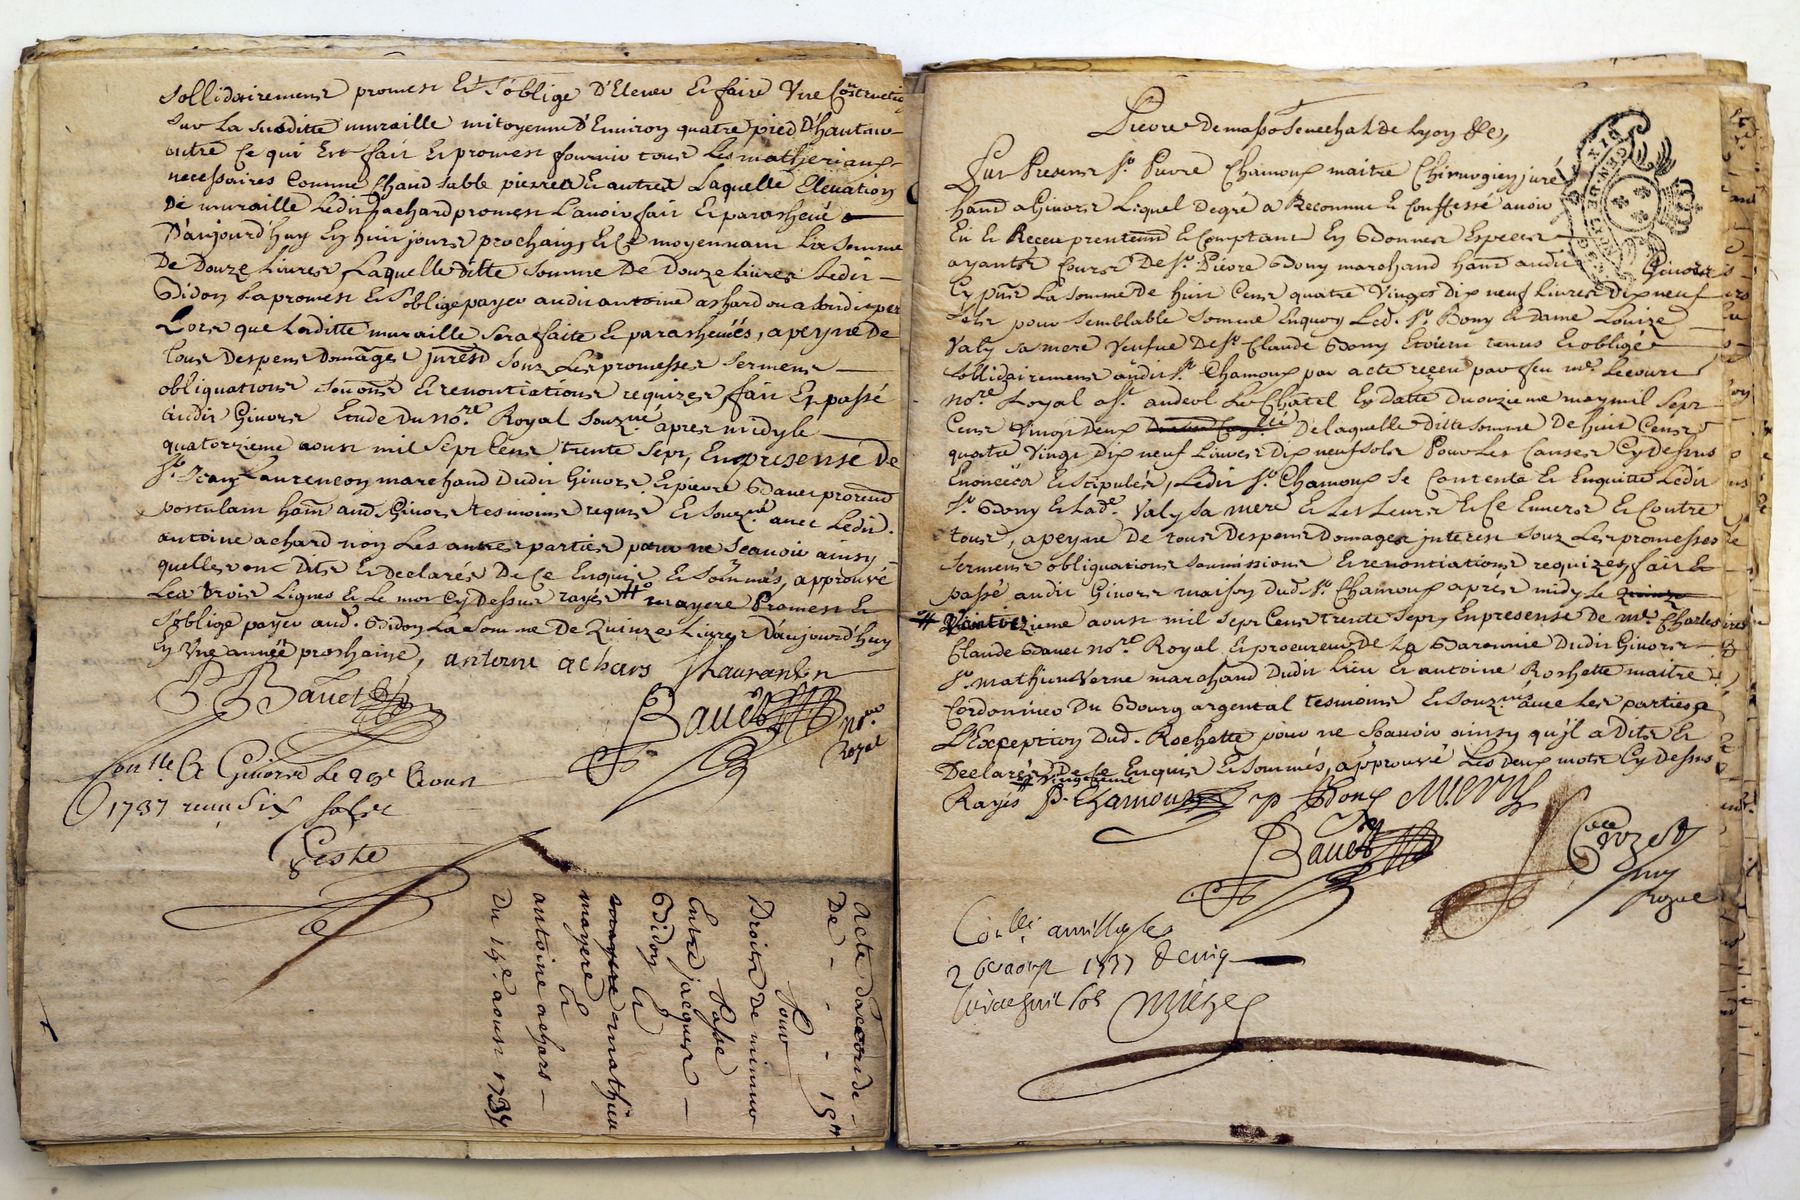 sollidairement promest Et S'oblige D'Elever Et faire Une Constructio
sur La susditte muraille mitoyenne D'Environ quatre pied D'hauteur
outre Ce qui Est fait Et promest fournir tous Les matheriaux
necessaires Comme Chaud sable pierres Et autres Laquelle Elevation
De muraille Ledit achard promest L'avoir fait Et parachevé
D'aujourd'huy En huit jours prochains, Et Ce moyennant La somme
De Douze Livres Laquelle ditte somme De Douze Livres Ledit
Odidon La promest Et S'oblige payer audit antoine achard
Lors que Laditte muraille sera faitte Et parachevéés, a peyne De
tous Despens Domages souz Les promesses serment
obligations Et renontiations requizes fait Et passé
audit Givors Etude Du no.re Royal souz.né apres midy le
quatorzieme aoust mil sept Cent trente sept, En presense De
s.r Jean Laurençon marchand Dudit Givors Et pierre Bavet
postulant aud. Givors tesmoins requis Et souz.né avec Ledit
antoine achard non Les autres parties pour ne sçavoir ainsy
quelles ont Dits Et Declarés De Ce Enquis Et sommés, approuvé
Les trois Lignes Et Le mot Cy Dessus rayés # mayere Promest Et
s'oblige payer aud. Odidon La somme De Quinzes Livres D'aujourd'huy
En Une année prochaine, antoine achars
P Bavet
Bavet no.re
Royal
Con.llé A Givors Le aoust
1737 six sols
Geste
acte D'accord
De - - - 15 #
Pour
Droits De
Passé
Entre jacques
Odidon Et
mathieu
mayere Et
antoine achars
Du 14.e aoust 1737
Pierre Demasso Senechal de Lyon &c,
Fut Present s.r Pierre Chamoux maitre Chirurgien juré
hant a Givors Lequel Degré a Reconnu Et Conffessé avoir
Eu Et Receu Et Comptant En Bonnes Especes
ayants Cours De s.r Pierre Bony marchand hant audit Givors
Cy pnt La somme De huit Cent quatre Vingts Dix neuf Livres Dix neuf
sols pour semblable somme Enquoy Led. s.r Bony Et Dame Louize
Valy sa mere Veufve De s.r Claude Bony Etoient tenus Et obligé
sollidairement audit s.r Chamoux par acte reçeu par feu m.e Lecourt
no.re Royal a s.t andeol Le Chatel En datte Du onzieme may mil sept
Cent Vingt Deux De laquelle ditte somme De huit Cents
quatre Vingt Dix neuf Livres Dix neuf sols Pour Les Causes Cy Dessus
Enoncéés Et stipuléés, Ledit s.r Chamoux se Contente Et Enquitte Ledit
s.r Bony Et Lad.e Valy sa mere Et Les Leurs Et Ce Envers Et Contre
tous, a peyne De tous Despens Domages interest souz Les promesses
serment obligations soumissions Et renontiations requizes, fait Et
passé audit Givors maison dud. s.r Chamoux aprés midy le
aoust mil sept Cent trente sept, En presense De m.e Charles
Claude Bavet no.re Royal Et procureur De La Baronnie Dudit Givors
s.r mathieu Verne marchand Dudit Lieu Et antoine Rochette maitre
Cordonnier Du Bourg argental tesmoins Et souz.nés avec Les parties a
L'Exception Dud. Rochette pour ne sçavoir ainsy qu'il a Dits Et
Declarés De Ce Enquis Et sommés, approuvé Les Deux mots Cy Dessus
Rayés # Vingtieme P. Chamoux p Bony M Verne
Bavet
Crozet
Royal
26 aoust 1737